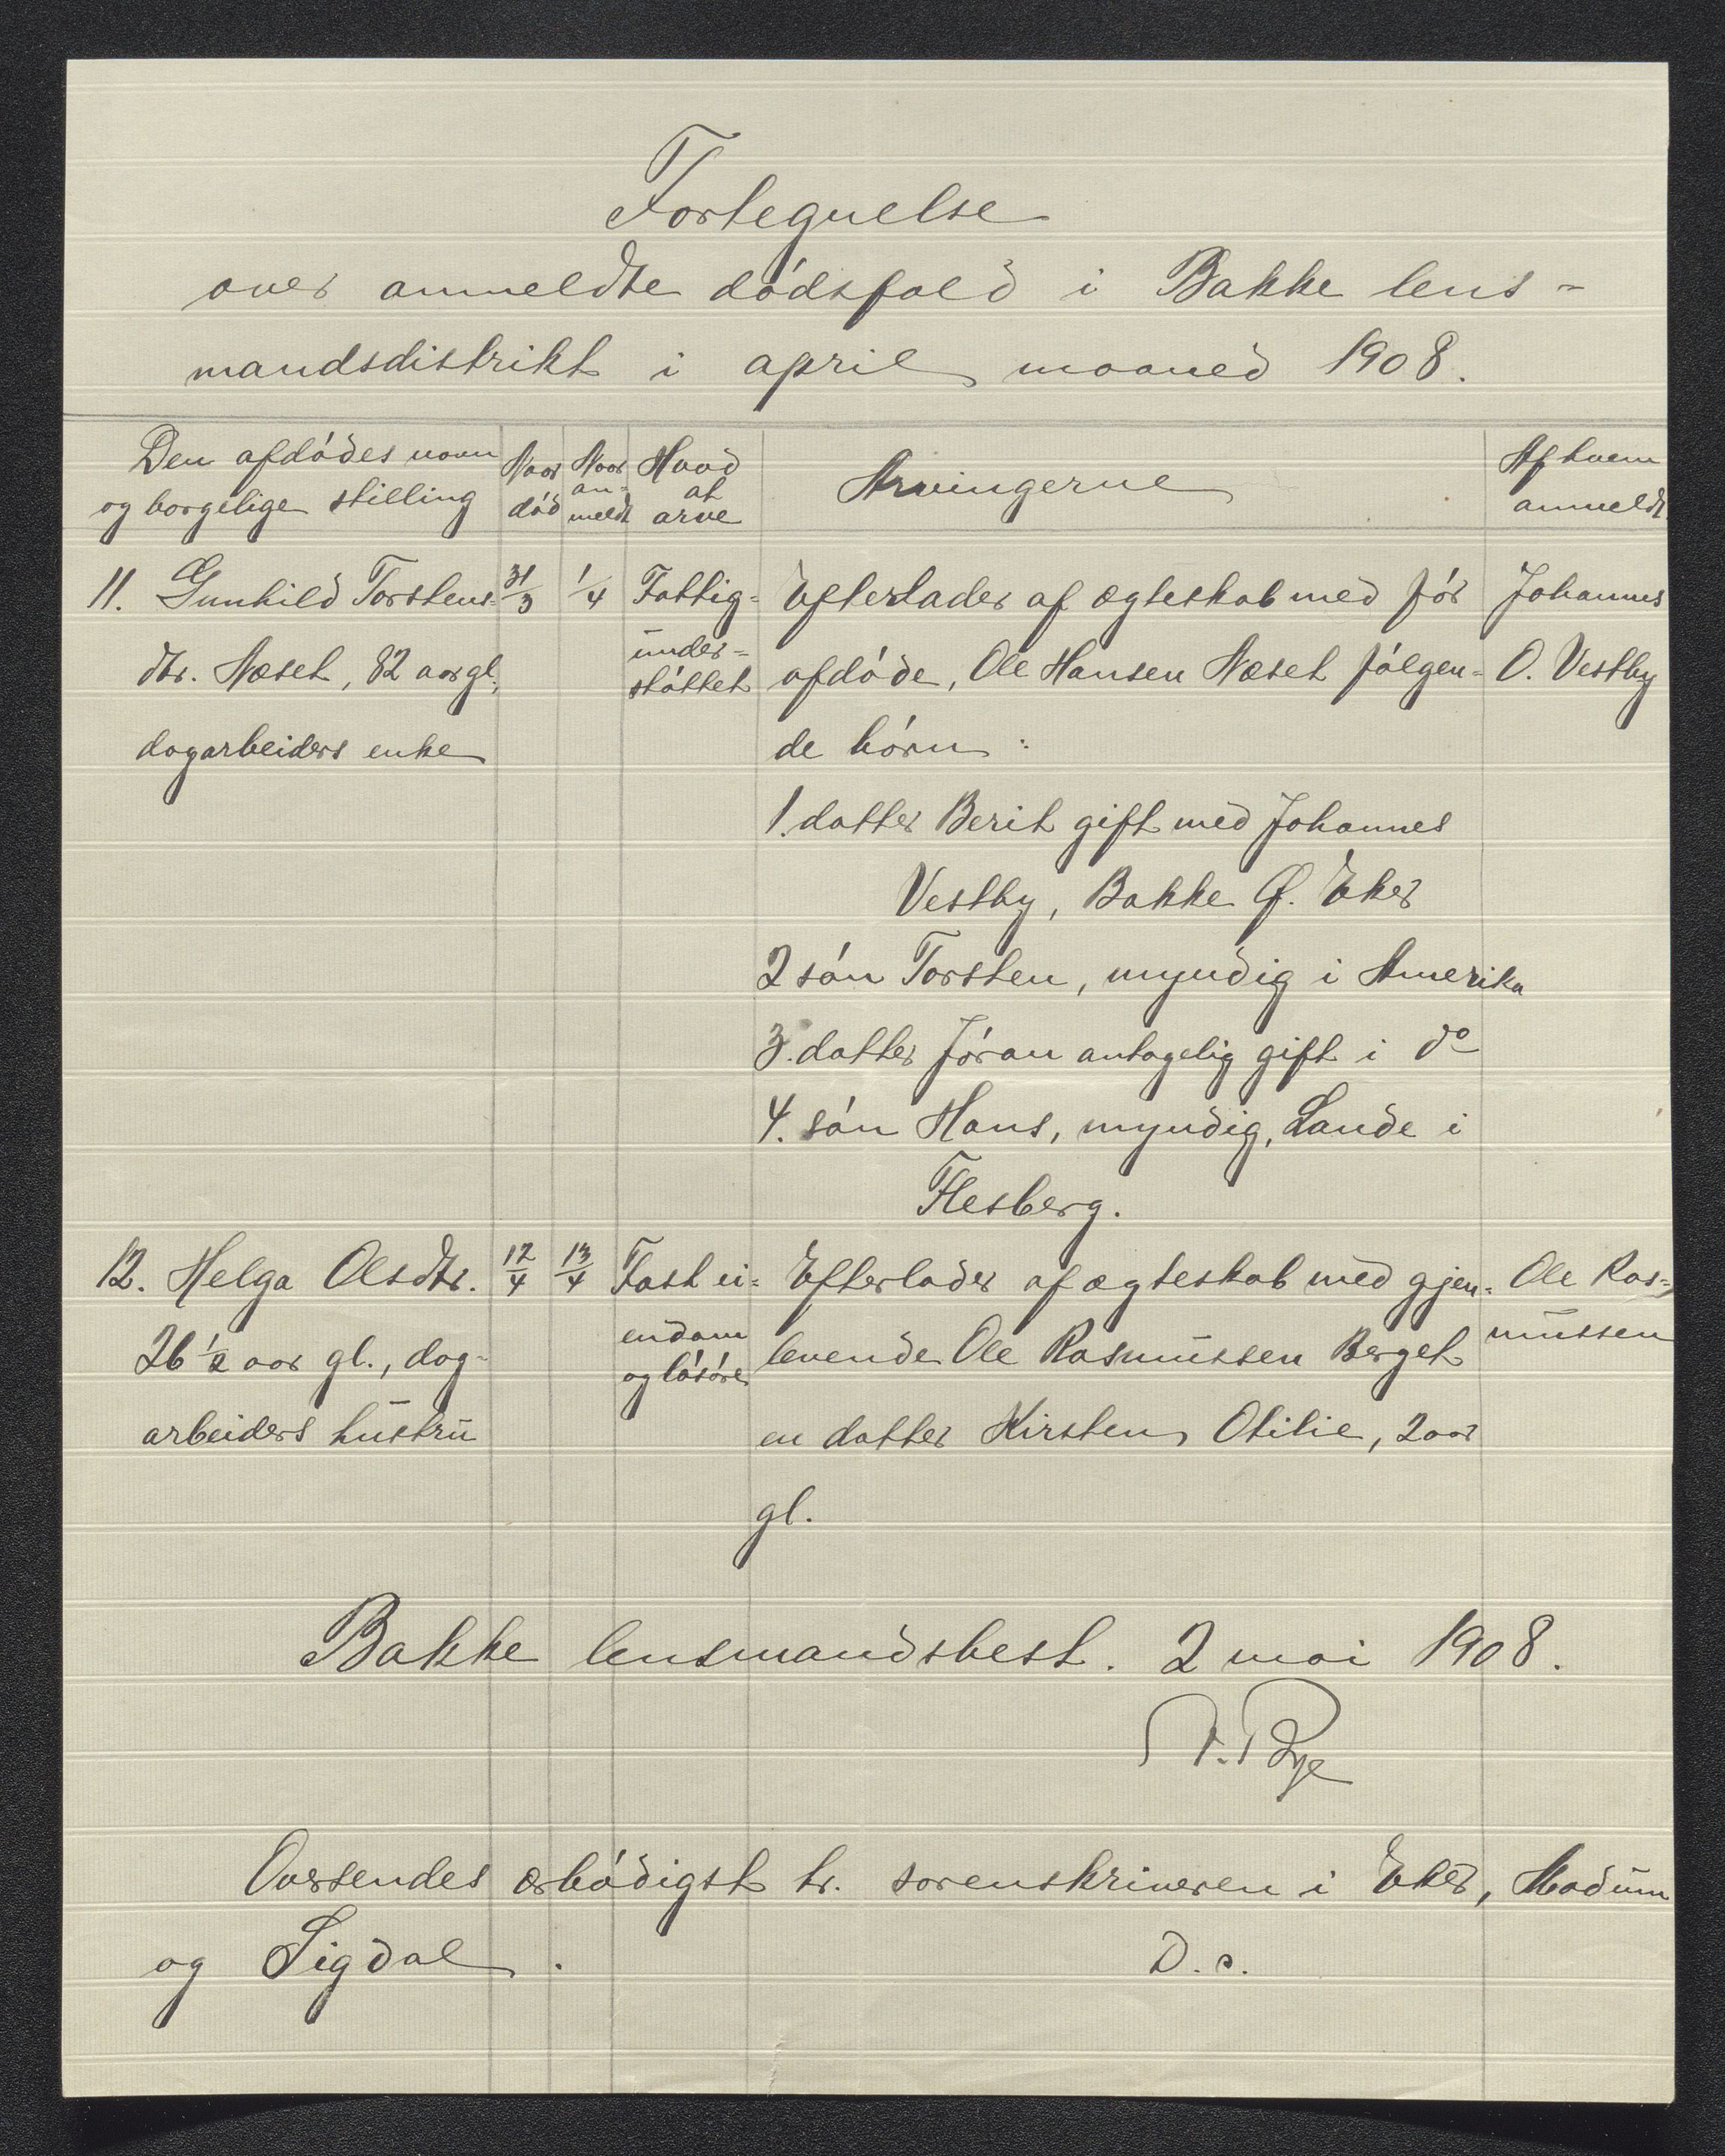 Fortegnelse
over anmeldte dódsfald i Bakke lens-
mandsdistrikt i april maaned 1908.
Den afdódes navn og borgelige stilling
Naar dód
Naar an-meldt
Hvad at arve
Arvingerne
Af hvem anmeldt
11. Gunhild Torstens-
dtr. Næset, 82 aar gl.,
dagarbeiders enke
31/3
1/4
Fattig-
under-
støttet
Efterlader af ægteskab med før
afdóde, Ole Hansen Næset følgen-
de børn:
1. datter Berit gift med Johannes
Vestby, Bakke Ø. Eker
2 són Torsten, myndig i Amerika
3. datter Jóran antagelig gift i do
4. són Hans, myndig, Lande i
Flesberg.
Johannes
O. Vestby
12. Helga Olsdtr.
26 1/2 aar gl., dag-
arbeiders hustru
12/4
13/4
Fast ei-
endom
og lósóre
Efterlader af ægteskab med gjen-
levende Ole Rasmussen Berget
en datter Kirsten Otilie, 2 aar
gl.
Ole Ras-
mussen
Bakke lensmandsbest. 2 mai 1908.
Bye
Oversendes ærbódigst hr. sorenskriveren i Eker, Modum
og Sigdal.
D. s.